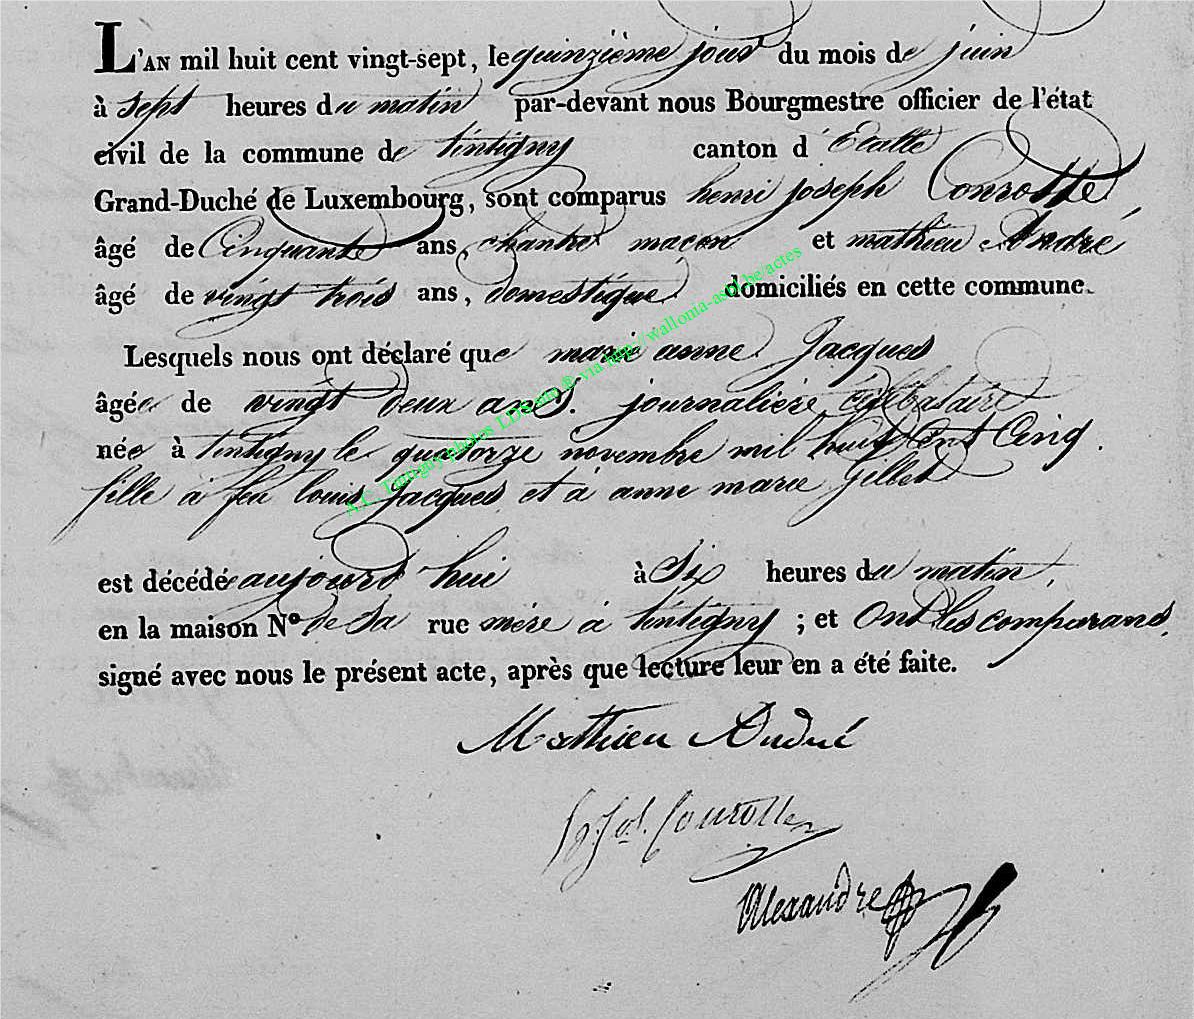 L'AN mil huit cent vingt-sept, le quinzième jour du mois de juin
à sept heures du matin par-devant nous Bourgmestre officier de l'état
civil de la commune de tintigny canton d'Etalle
Grand-Duché de Luxembourg, sont comparus henri joseph Conrotte
âgé de Cinquante ans, chantre maçon et mathieu André
âgé de vingt trois ans, domestique domiciliés en cette commune.
Lesquels nous ont déclaré que marie anne Jacques
âgée de vingt deux ans. journalière célibataire
née à tintigny le quatorze novembre mil huit Cent Cinq.
fille à feu louis Jacques et à anne marie Gillet
est décédée aujourd'hui à Six heures du matin,
en la maison N° de Sa rue mère à tintigny ; et Ont les comparans,
signé avec nous le présent acte, après que lecture leur en a été faite.
Mathieu André
h. Jos. Conrotte
Alexandre
A.C. Tintigny photos LDS via http://wallonia-asbl.be/actes